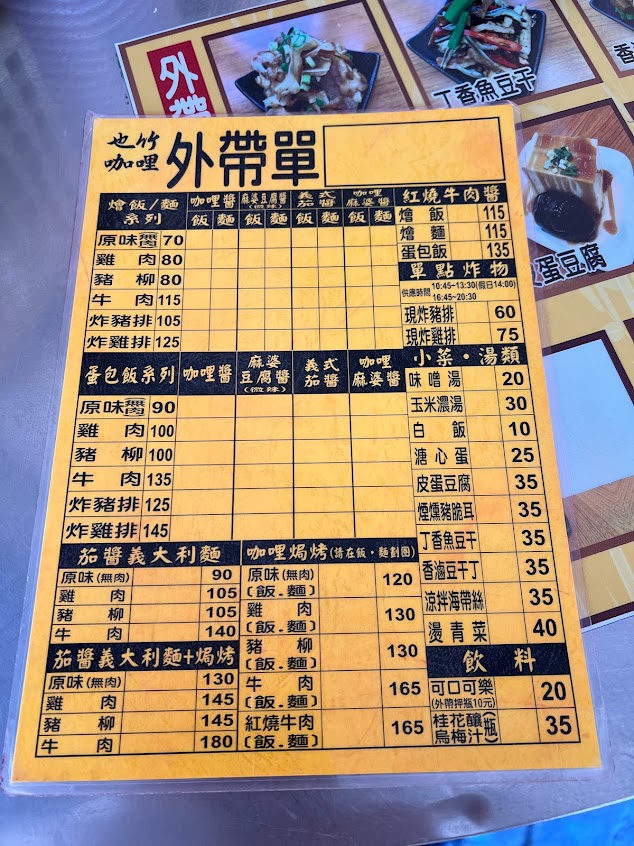 外帶
丁香魚豆干
香
蛋豆腐
也竹
咖哩
外帶單
燴飯/麵
系列
咖哩醬
麻婆豆腐醬
(微辣)
義式
茄醬
咖哩
麻婆醬
飯 麵 飯 麵 飯 麵 飯 麵
原味無肉 70
雞肉 80
豬柳 80
牛肉 115
炸豬排 105
炸雞排 125
蛋包飯系列 咖哩醬
麻婆
豆腐醬
(微辣)
義式
茄醬
咖哩
麻婆醬
原味無肉 90
雞肉 100
豬柳 100
牛肉 135
炸豬排 125
炸雞排 145
茄醬義大利麵
原味(無肉) 90
雞肉 105
豬柳 105
牛肉 140
茄醬義大利麵+焗烤
原味(無肉) 130
雞肉 145
豬柳 145
牛肉 180
咖哩焗烤(請在飯・麵劃圈)
原味(無肉)
(飯.麵) 120
雞肉
(飯.麵) 130
豬柳
(飯.麵) 130
牛肉
(飯.麵) 165
紅燒牛肉
(飯.麵) 165
紅燒牛肉醬
燴飯 115
燴麵 115
蛋包飯 135
單點炸物
供應時間 10:45~13:30(假日14:00)
16:45~20:30
現炸豬排 60
現炸雞排 75
小菜・湯類
味噌湯 20
玉米濃湯 30
白飯 10
溏心蛋 25
皮蛋豆腐 35
煙燻豬脆耳 35
丁香魚豆干 35
香滷豆干丁 35
涼拌海帶絲 35
燙青菜 40
飲料
可口可樂 20
(外帶押瓶10元)
桂花釀
烏梅汁(瓶) 35